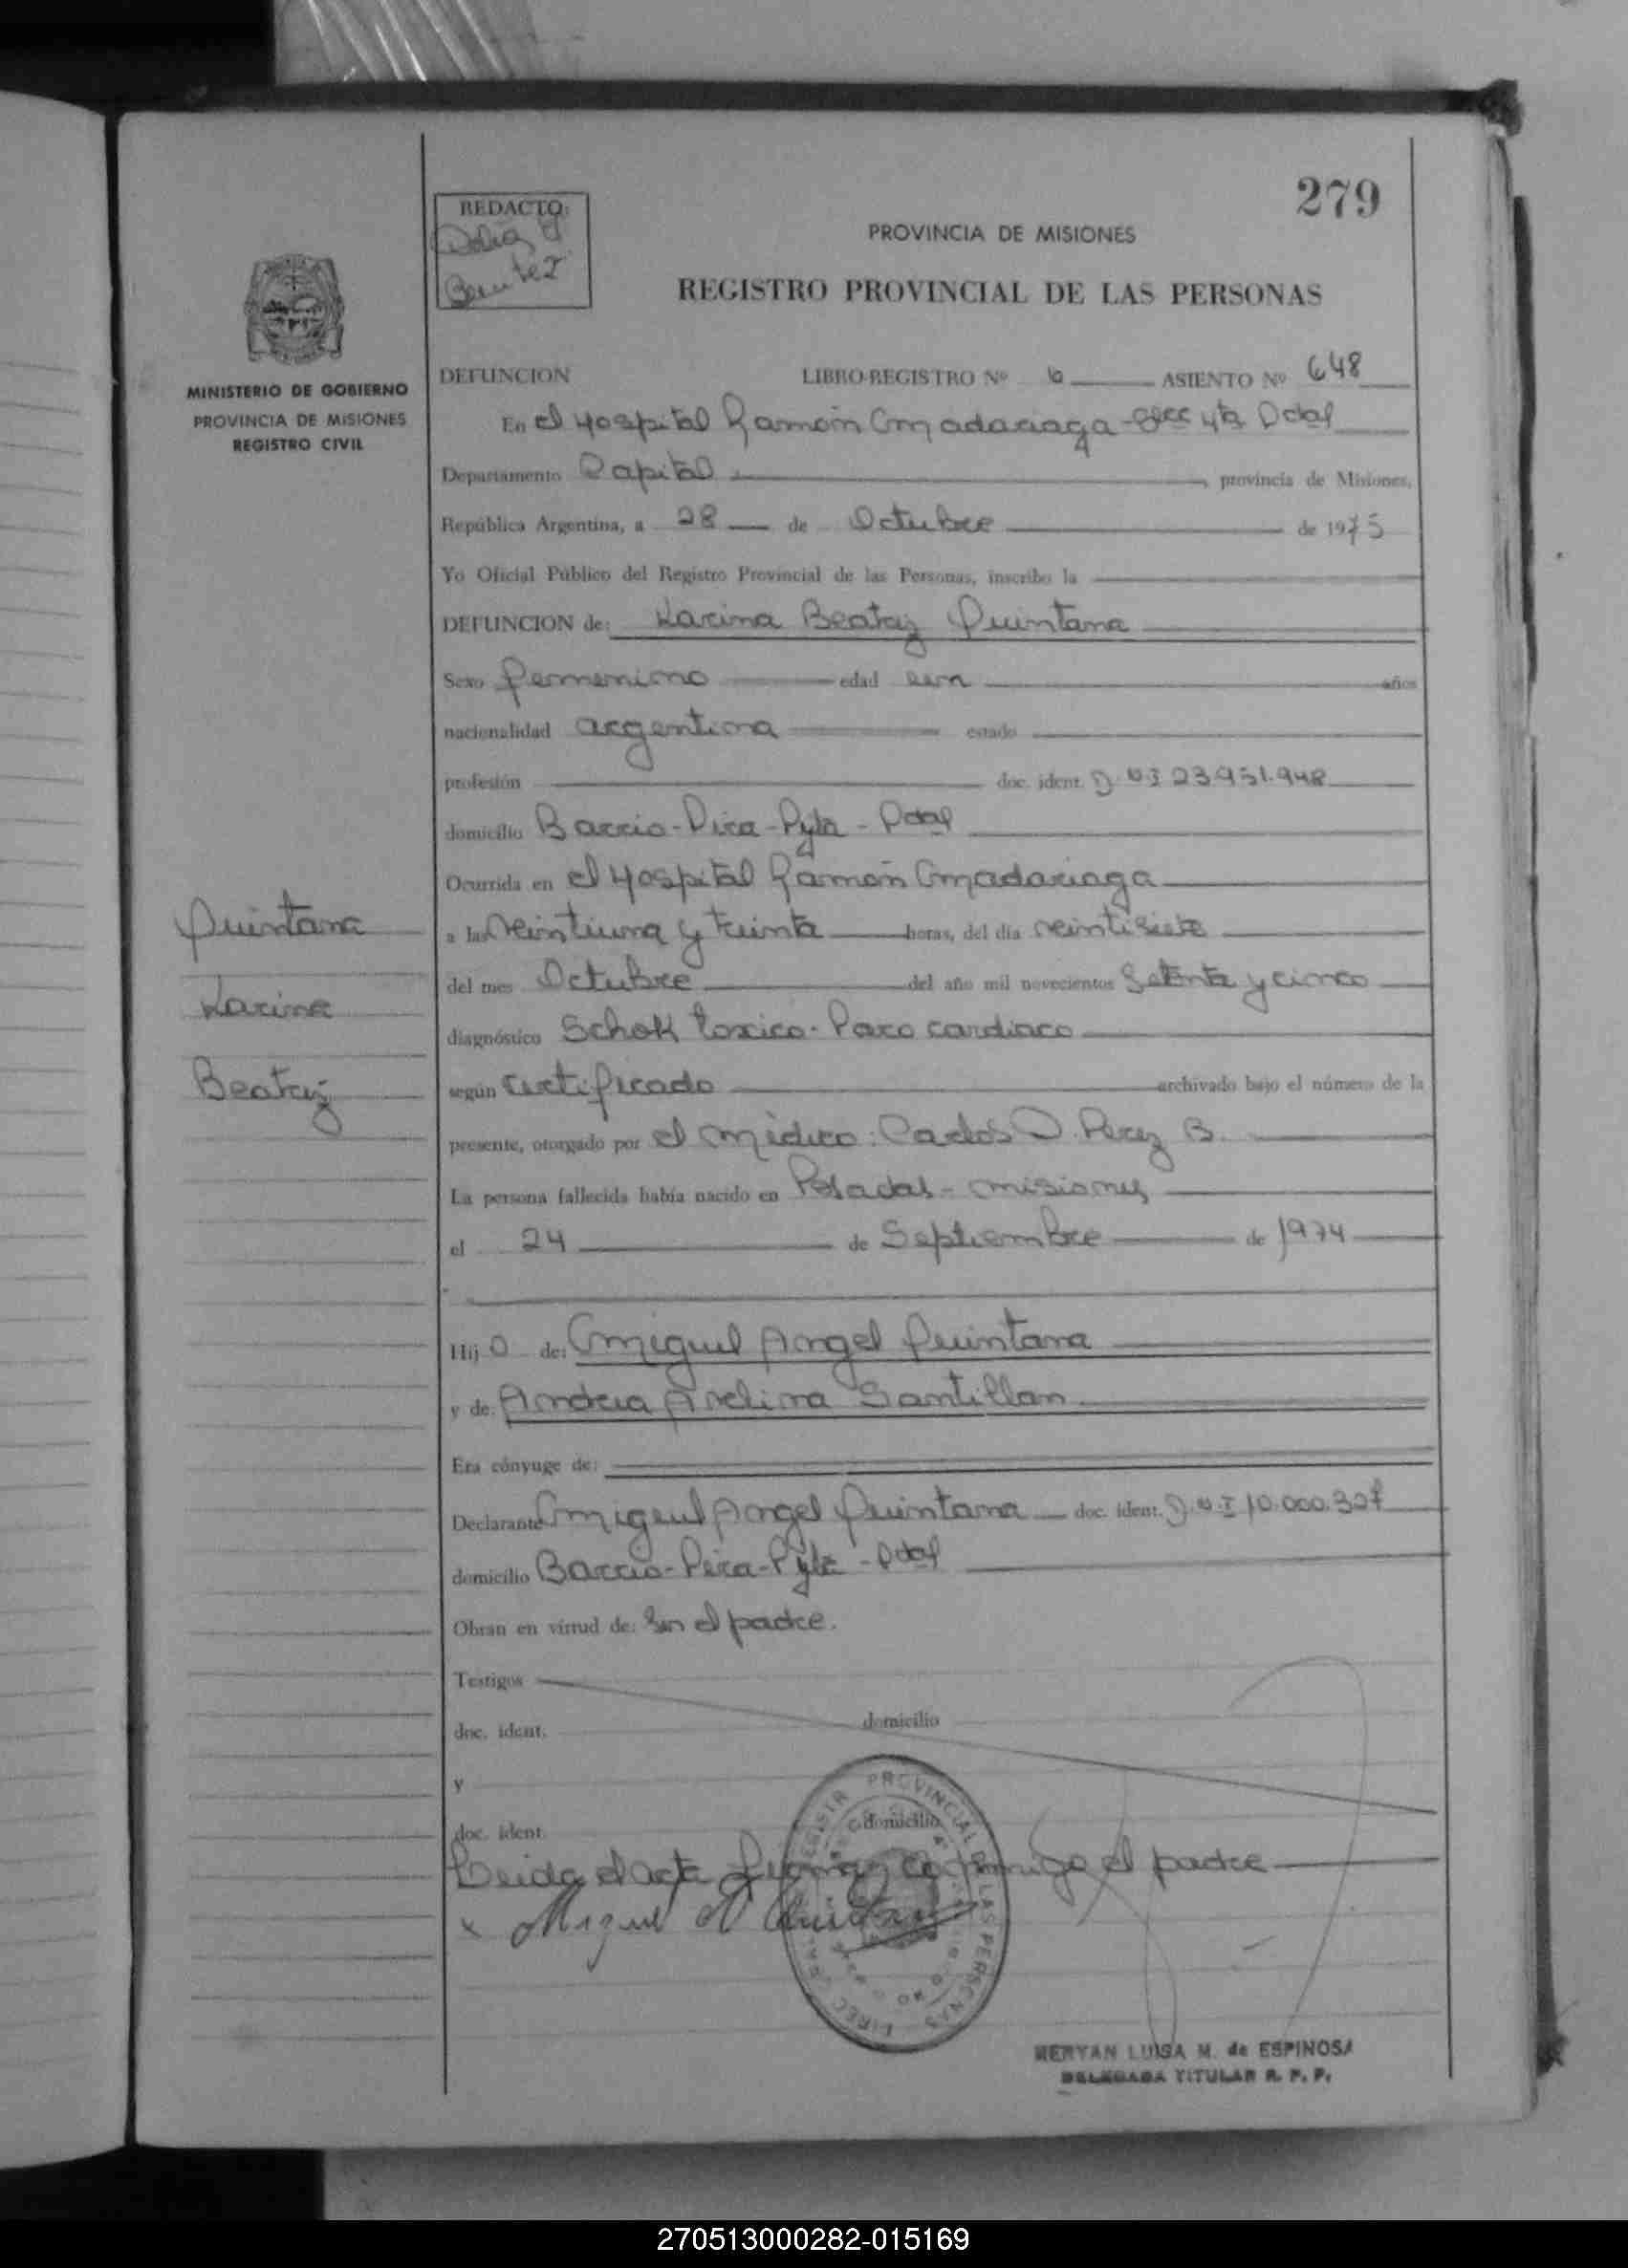 279
REDACTO:
Delia
Benitez
PROVINCIA DE MISIONES
REGISTRO PROVINCIAL DE LAS PERSONAS
MINISTERIO DE GOBIERNO
PROVINCIA DE MISIONES
REGISTRO CIVIL
DEFUNCION LIBRO-REGISTRO Nº 6 ASIENTO Nº 648
En el Hospital Ramón Madariaga
Departamento Capital, provincia de Misiones,
República Argentina, a 28 de Octubre de 1975
Yo Oficial Público del Registro Provincial de las Personas, inscribo la
DEFUNCION de: Karina Beatriz Quintana
Sexo femenino edad un años
nacionalidad argentina estado
profesión doc. ident. D.N.I 23.951.948
domicilio Barrio-Pira-Pytá-Pdas
Ocurrida en el Hospital Ramón Madariaga
Quintana
a las veintiuna y treinta horas, del día veintisiete
del mes Octubre del año mil novecientos Setenta y cinco
Karina
diagnóstico Schok toxico-Paro cardiaco
Beatriz
según certificado archivado bajo el número de la
presente, otorgado por el médico: Carlos D. Perez B.
La persona fallecida había nacido en Posadas-misiones
el 24 de Septiembre de 1974
Hij O de: Miguel Angel Quintana
y de: Andrea Avelina Santillan
Era cónyuge de:
Declarante Miguel Angel Quintana doc. ident. D.N.I 10.000.327
domicilio Barrio-Pira-Pytá-Pdas
Obran en virtud de: Ser el padre.
Testigos
doc. ident. domicilio
y
doc. ident. domicilio
Leida el acta firma conmigo el padre
x Miguel A Quintana
PROVINCIAL DE LAS PERSONAS
MERYAN LUISA M. de ESPINOSA
DELEGADA TITULAR R. P. P.
270513000282-015169